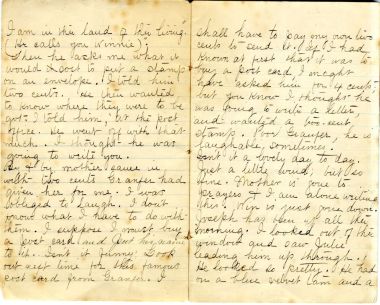 I am in the land of the living.
(He calls you Winnie);
Then he asked me what it
would cost to put a stamp
on an envelope. I told him
two cents. He then wanted
to know where they were to be
got. I told him, "at the post
office." He went off with that
. I thought he was
going to write you.
By & by mother came in
with two cents Granfer had
given her for me. I was
obliged to laugh. I dont
know what I have to do with
them. I suppose I must buy
a post card and put his name
to it. Isn't it funny? Look
out next time for this famous
post card from Granfer. I
shall have to pay my own two
cents to send it. If I had
known at first that it was to
buy a post card, I might
have asked him for 4 cents,
but you know I thought he
was going to write a letter,
and wanted a two-cent
stamp. Poor Granfer, he is
laughable, sometimes.
Isn't it a lovely day to day.
Just a little wind, but so
fine. Mother is gone to
prayers so I am alone writing
this. Min is just gone down.
Joseph has been up all the
morning. I looked out of the
window and saw Julie
leading him up through.
He looked so pretty. He had
on a blue velvet Tam and a